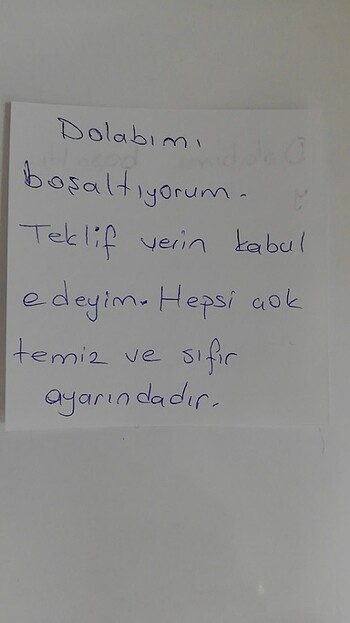 Dolabımı
boşaltıyorum.
Teklif verin kabul
edeyim. Hepsi çok
temiz ve sıfır
ayarındadır.